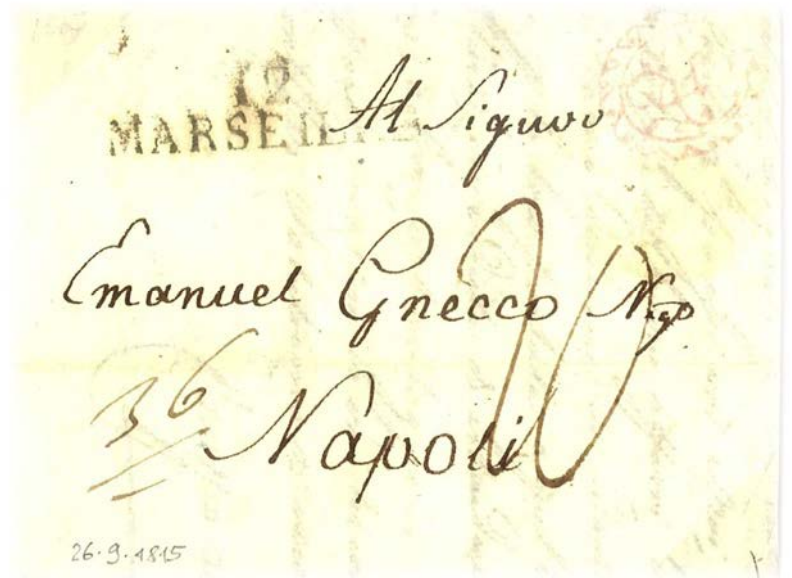 12
MARSEILLE
Al Signor
Emanuel Gnecco Nego
20
36
Napoli
26.9.1815